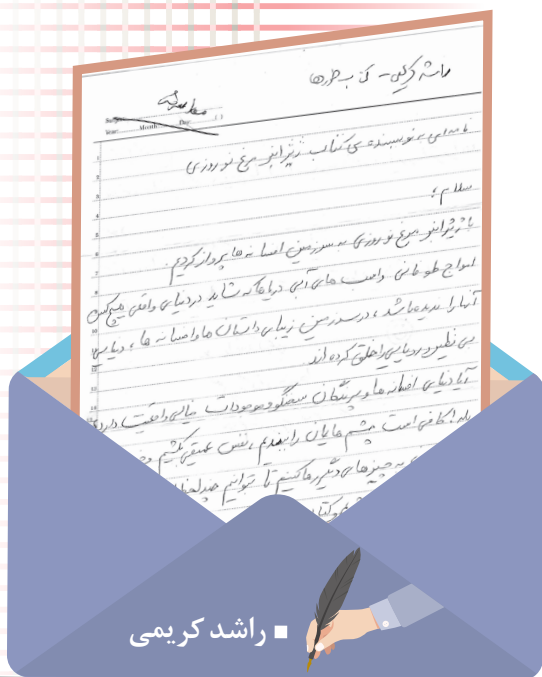 راشد کریمی - کتاب
Subject
Year: Month: Day: ( )
نامه‌ای به نویسنده‌ی کتاب زیژانبو مرغ نوروزی
سلام؛
با زیژانبو مرغ نوروزی به سرزمین افسانه‌ها پرواز کردیم.
امواج طوفانی و اسب‌های آبی دریاها که شاید در دنیای واقعی هیچ‌کس
آنها را ندیده باشد، در سرزمین زیبای داستان‌ها و افسانه‌ها، دنیایی
بی‌نظیر و رویایی را خلق کرده‌اند.
آیا دنیای افسانه‌ها و پرندگان سخنگو و موجودات خیالی واقعیت دارد؟
بله! کافی است چشم‌هایمان را ببندیم، نفس عمیقی بکشیم و
به چیزهای دیگر رها کنیم تا بتوانیم چند لحظه
و کتاب
راشد کریمی